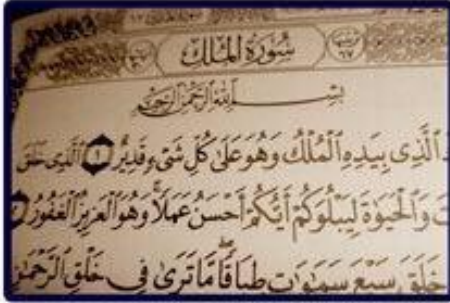 سُورَةُ المُلْكِ
بِسْمِ ٱللَّهِ ٱلرَّحْمَٰنِ ٱلرَّحِيمِ
ٱلَّذِى بِيَدِهِ ٱلْمُلْكُ وَهُوَ عَلَىٰ كُلِّ شَىْءٍ قَدِيرٌ ١ ٱلَّذِى خَلَقَ
وَٱلْحَيَوٰةَ لِيَبْلُوَكُمْ أَيُّكُمْ أَحْسَنُ عَمَلًا ۚ وَهُوَ ٱلْعَزِيزُ ٱلْغَفُورُ
خَلَقَ سَبْعَ سَمَٰوَٰتٍ طِبَاقًا ۖ مَّا تَرَىٰ فِى خَلْقِ ٱلرَّحْمَٰنِ